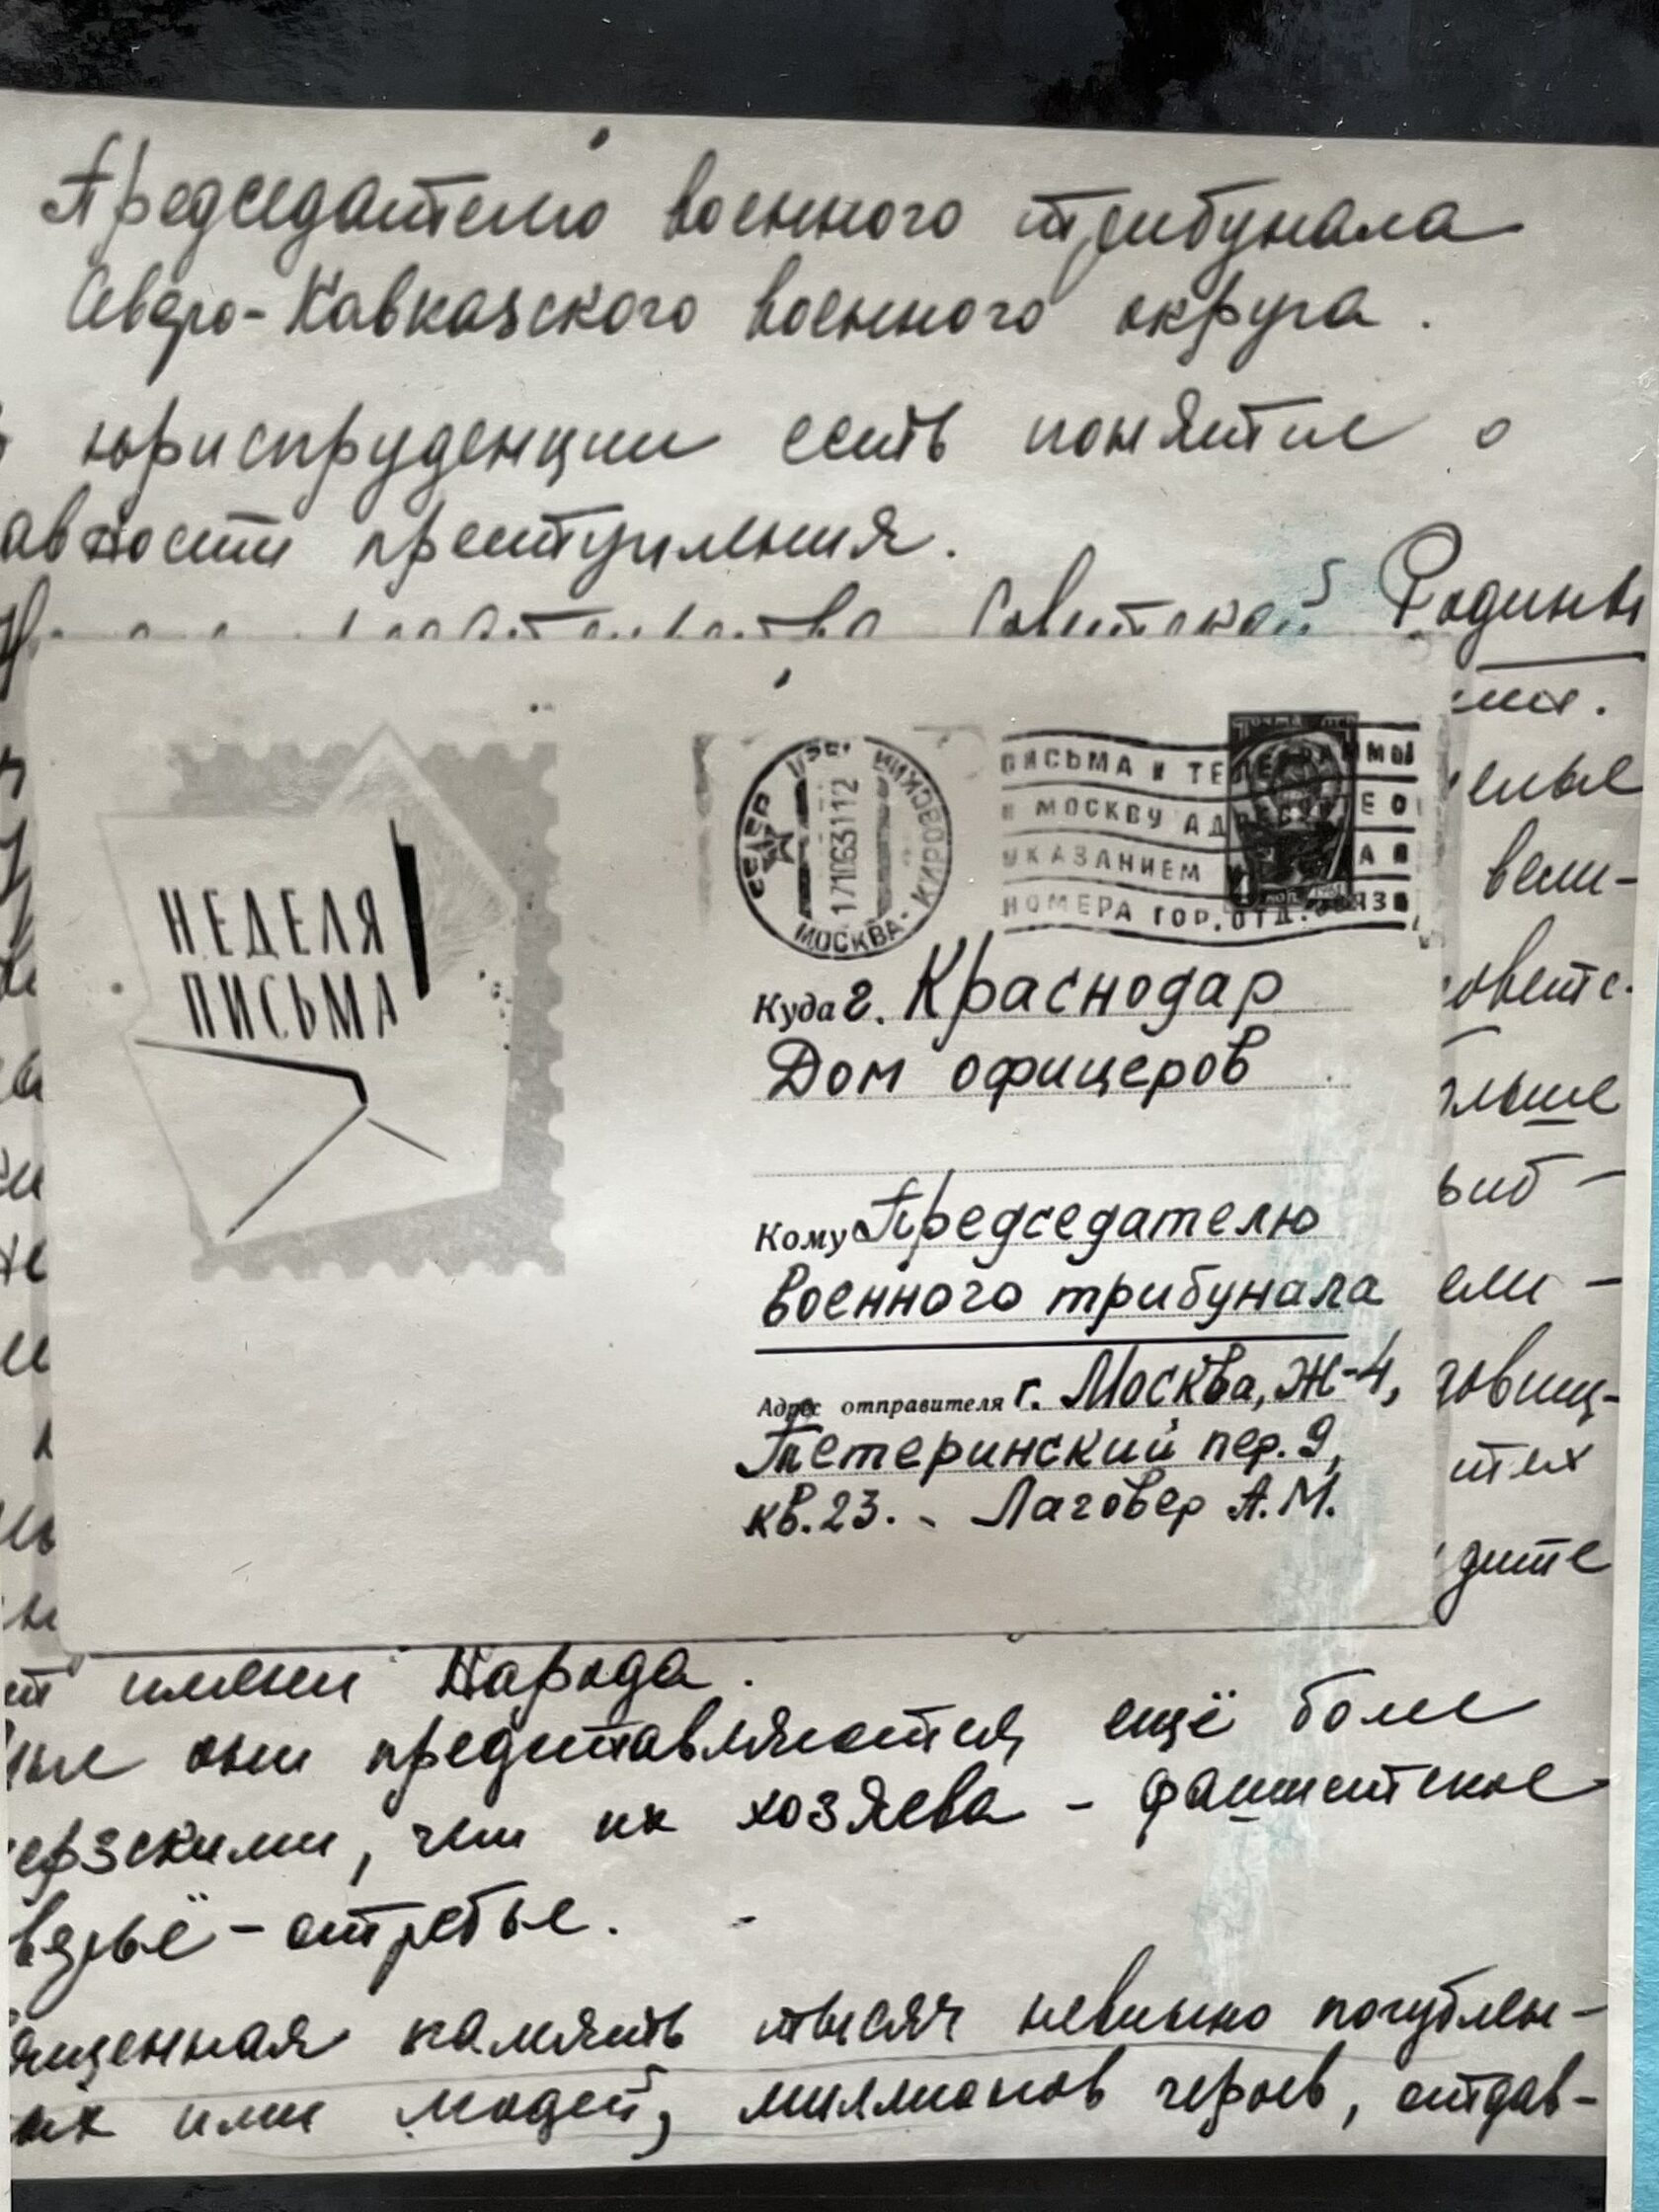 Председателю военного трибунала
Северо-Кавказского военного округа.
юриспруденции есть понятие о
авности преступления.
Советской Родины
вели-
дите
НЕДЕЛЯ
ПИСЬМА
СССР
МОСКВА-КИРОВСКИЙ
17106311 12
ПИСЬМА И ТЕЛЕГРАММЫ
В МОСКВУ АДРЕСУЙТЕ С
УКАЗАНИЕМ
НОМЕРА ГОР.ОТД.СВЯЗИ
Куда г. Краснодар
Дом офицеров
Кому Председателю
военного трибунала
Адрес отправителя г. Москва, Ж-4,
Тетеринский пер. 9,
кв. 23. - Лаговер А.М.
имени Народа.
они представляются ещё более
ерзскими, чем их хозяева - фашистское
верьё-отребье.
ященная память тысяч невинно погублен-
ых ими людей, миллионов героев, отдав-